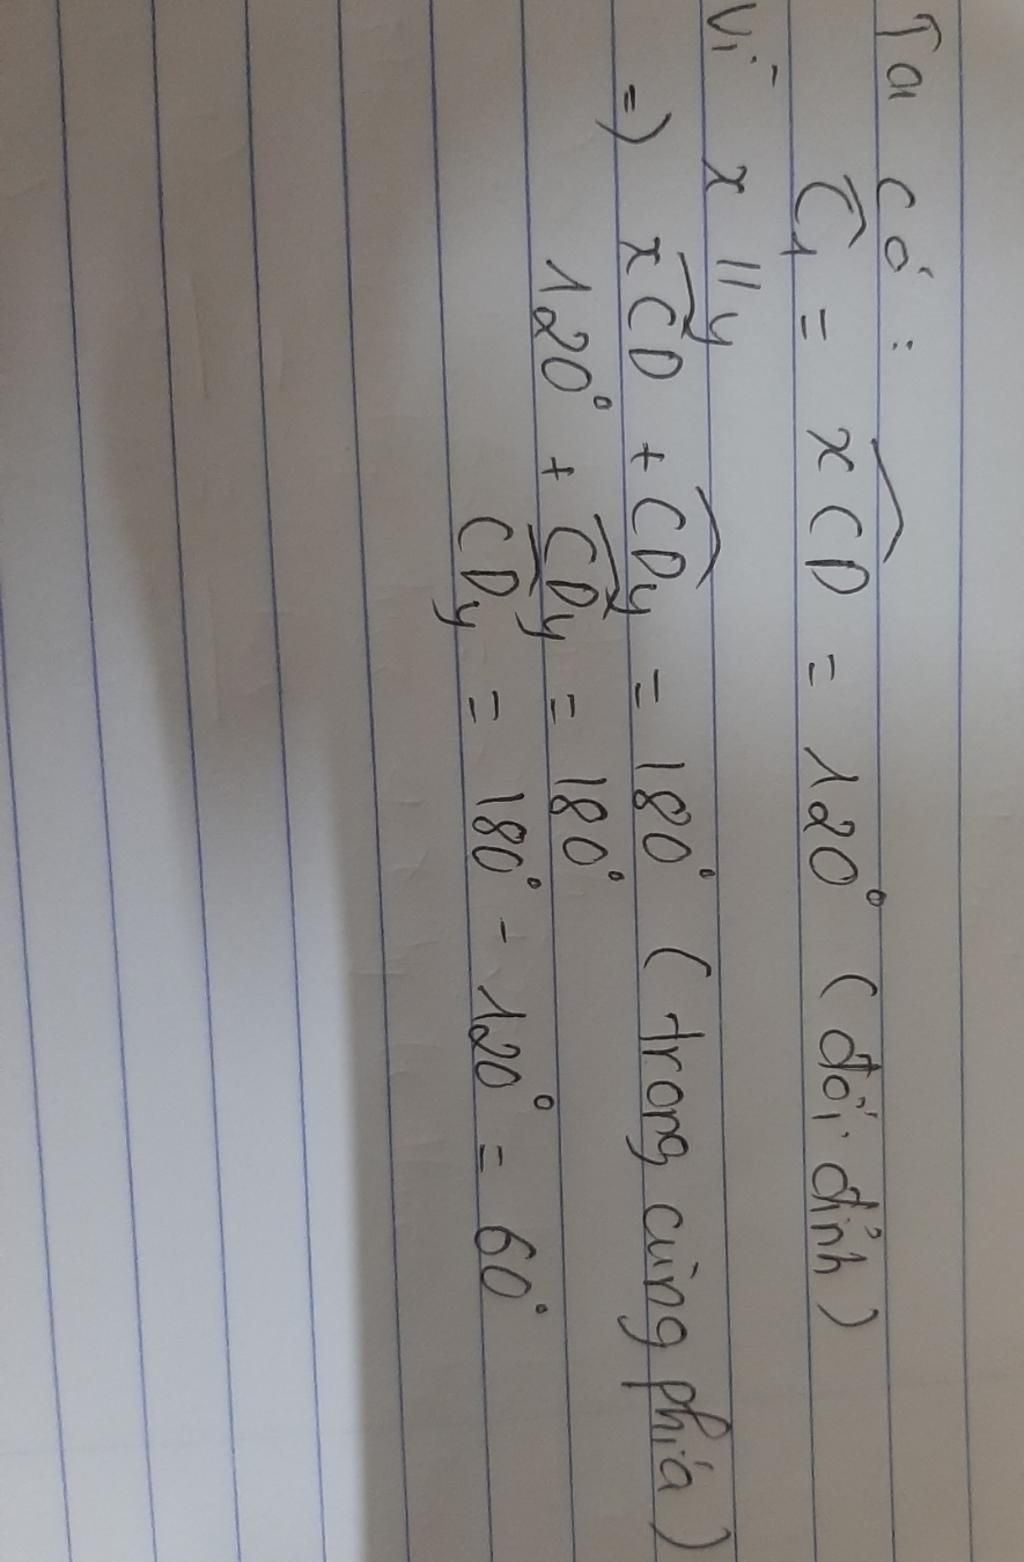 Ta có :
Ĉ₁ = xĈD = 120° (đối đỉnh)
Vì x // y
=> xĈD + CD̂y = 180° (trong cùng phía)
120° + CD̂y = 180°
CD̂y = 180° - 120° = 60°